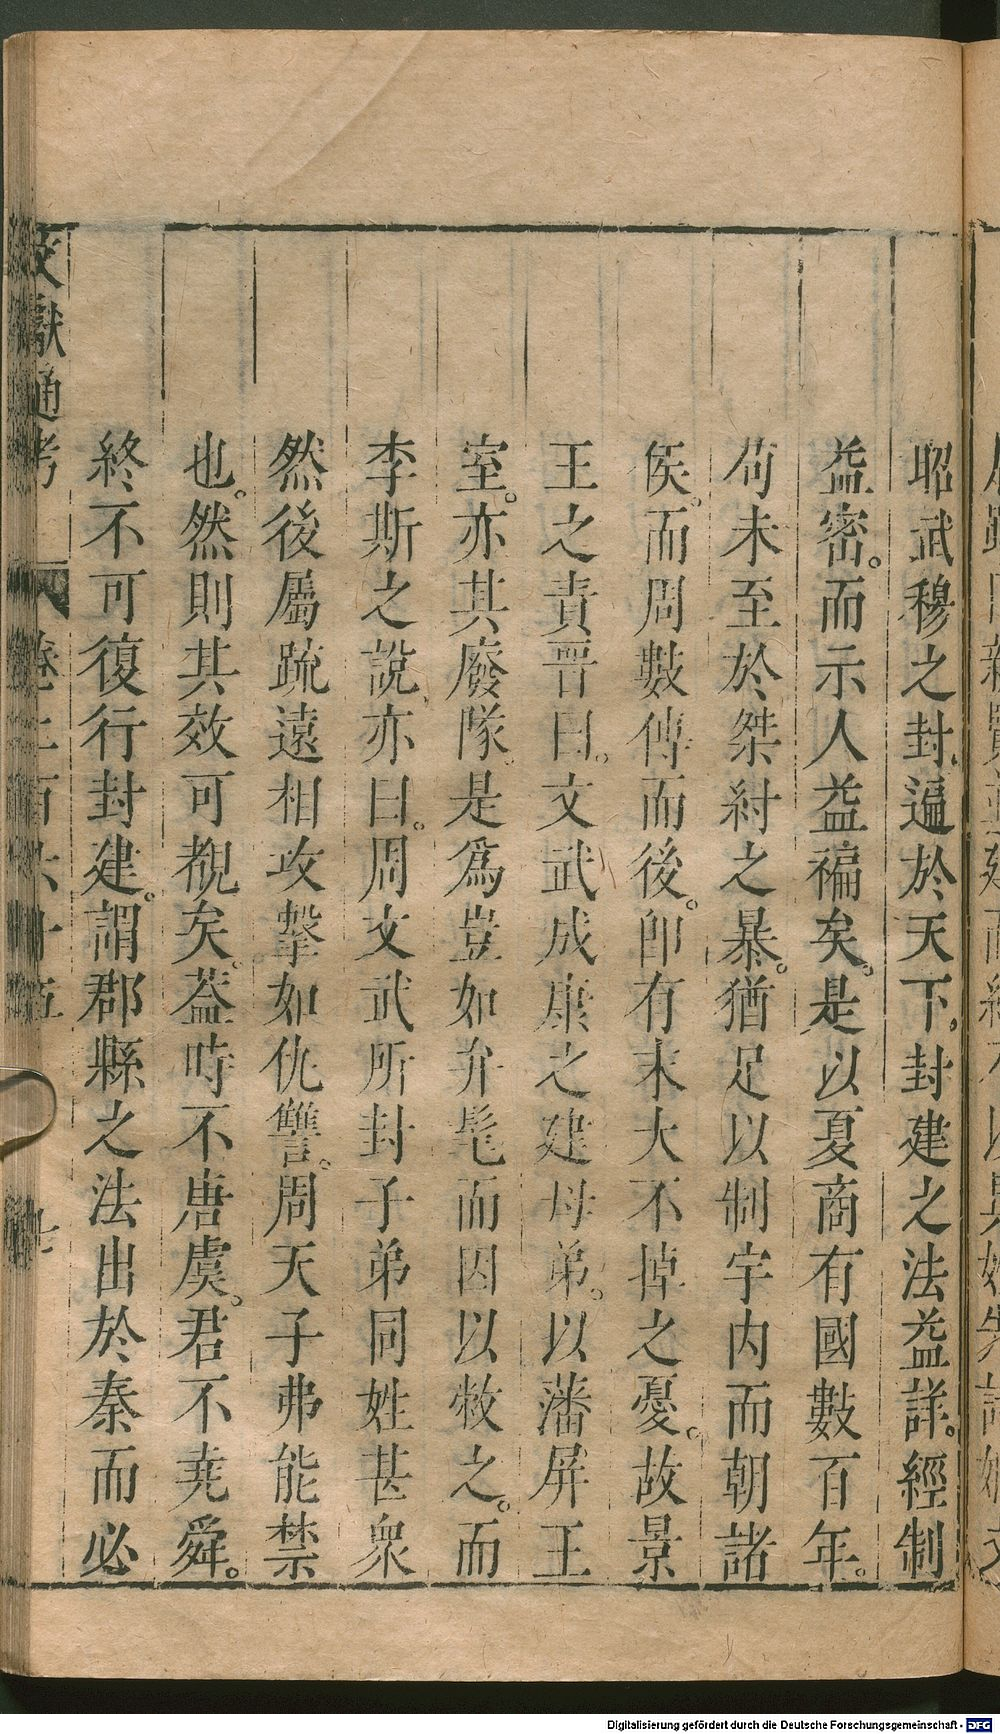 昭武穆之封遍於天下封建之法益詳經制
益密而示人益褊矣是以夏商有國數百年
苟未至於桀紂之暴猶足以制宇內而朝諸
侯而周數傳而後即有末大不掉之憂故景
王之責晉曰文武成康之建母弟以藩屏王
室亦其廢隊是爲豈如弁髦而因以敝之而
李斯之說亦曰周文武所封子弟同姓甚衆
然後屬疏遠相攻擊如仇讐周天子弗能禁
也然則其效可覩矣葢時不唐虞君不堯舜
終不可復行封建謂郡縣之法出於秦而必
文獻通考 卷二百六十五 七
Digitalisierung gefördert durch die Deutsche Forschungsgemeinschaft - DFG